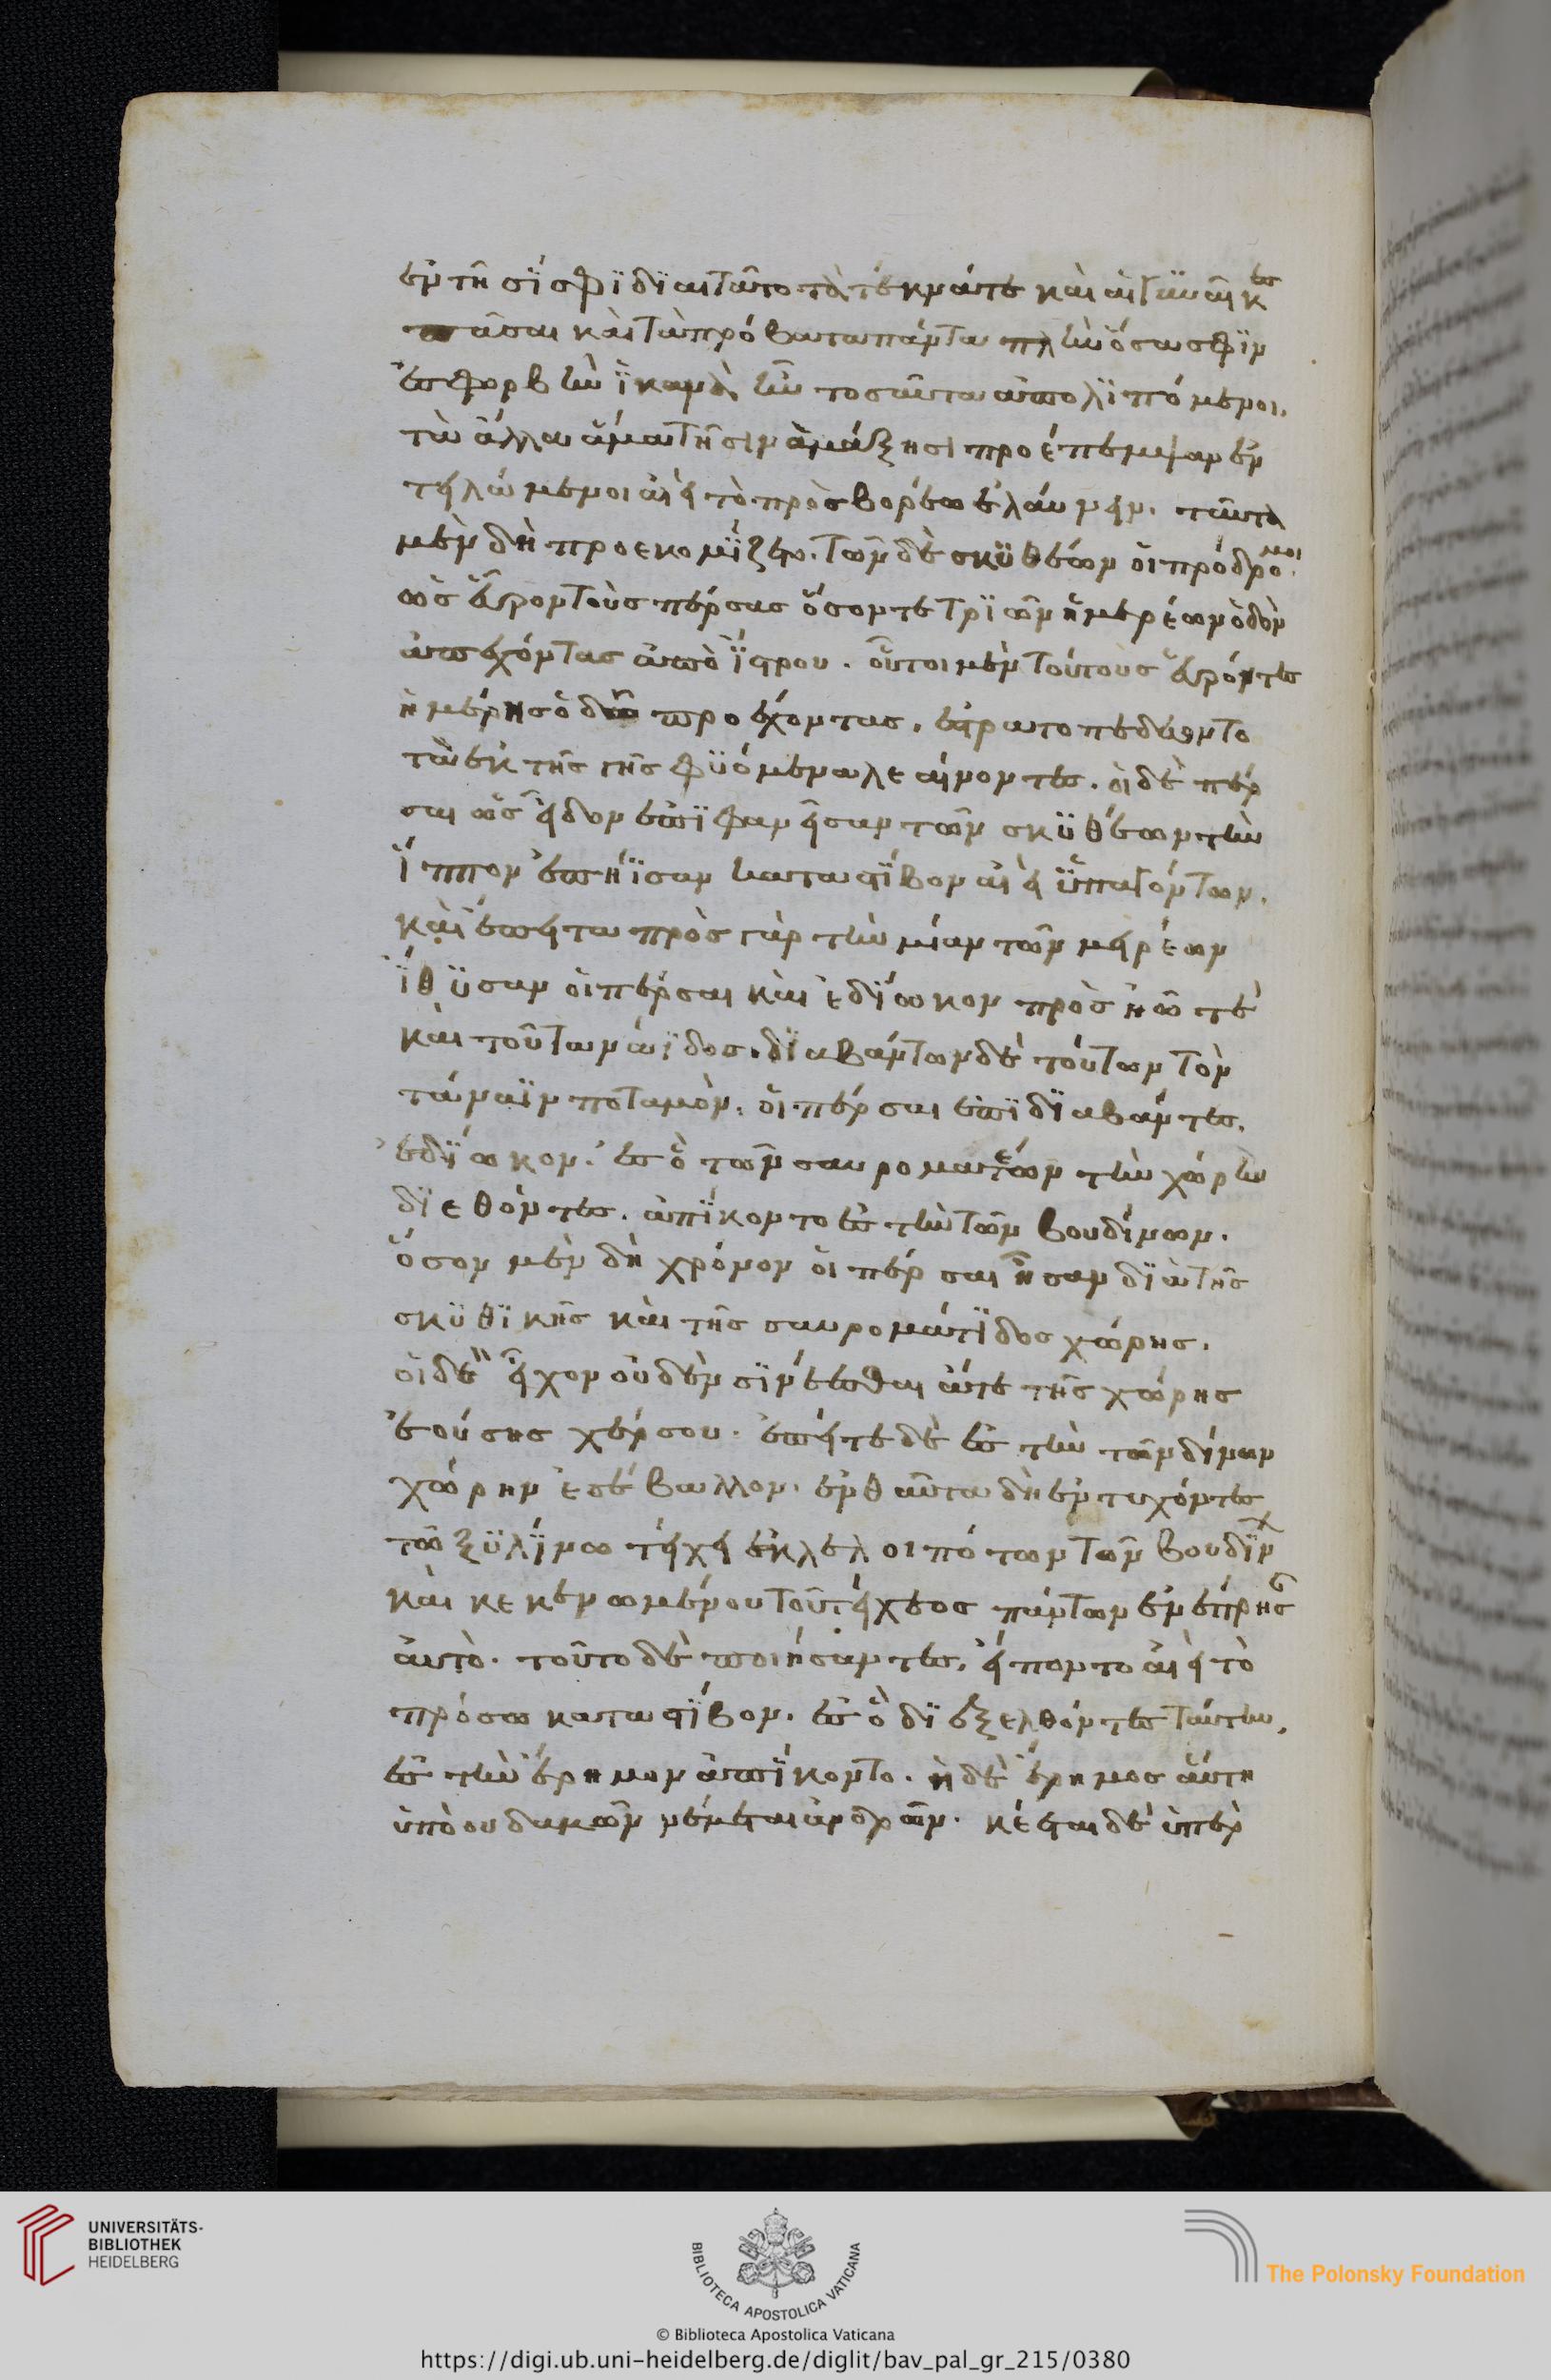 ἐν τῆσί σφι διαιτᾶτο τὰ τέκνά τε καὶ αἱ γυναῖκες
πᾶσαι καὶ τὰ πρόβατα πάντα πλὴν ὅσα σφιν
ἐς φορβὴν ἱκανὰ ἦν τοσαῦτα ἀπολιπόμενοι.
τὰ ἄλλα ἅμα τῆσιν ἁμάξησι προέπεμψαν ἐν
τειλάμενοι αἰεὶ τὸ πρὸς βορέω ἐλαύνειν. ταῦτα
μὲν δὴ προεκομίζετο. τῶν δὲ σκυθέων οἱ πρόδρομοι
ὡς εὗρον τοὺς πέρσας ὅσον τε τριῶν ἡμερέων ὁδὸν
ἀπέχοντας ἀπὸ ἴστρου. οὗτοι μὲν τούτους εὑρόντες
ἡμέρης ὁδῶ προέχοντας, ἐστρατοπεδεύοντο
τὰ ἐκ τῆς γῆς φυόμενα λεαίνοντες. οἱ δὲ πέρ
σαι ὡς εἶδον ἐπιφανεῖσαν τῶν σκυθέων τὴν
ἵππον ἐπήισαν κατὰ στίβον αἰεὶ ὑπαγόντων.
καὶ ἔπειτα πρὸς γὰρ τὴν μίαν τῶν μερέων
ἴθυσαν οἱ πέρσαι καὶ ἐδίωκον πρὸς ἠῶ τε
καὶ τοῦ τανάιδος. διαβάντων δὲ τούτων τὸν
τάναϊν ποταμὸν, οἱ πέρσαι ἐπιδιαβάντες,
ἐδίωκον. ἐς ὃ τῶν σαυροματέων τὴν χώρην
διεθόντες. ἀπίκοντο ἐς τὴν τῶν βουδίνων.
ὅσον μὲν δὴ χρόνον οἱ πέρσαι ἦσαν διὰ τῆς
σκυθικῆς καὶ τῆς σαυρομάτιδος χώρης.
οἱ δὲ εἶχον οὐδὲν σίνεσθαι ἅτε τῆς χώρης
ἐούσης χέρσου. ἐπείτε δὲ ἐς τὴν τῶν δίνων
χώρην ἐσέβαλλον. ἐνθαῦτα δὴ ἐντυχόντες
τῶ ξυλίνω τείχει ἐκλελοιπότων τῶν βουδίνων
καὶ κεκενωμένου τοῦ τείχεος πάντων ἐνέπρησαν
αὐτό. τοῦτο δὲ ποιήσαντες, εἵποντο αἰεὶ τὸ
πρόσω κατὰ στίβον. ἐς ὃ διεξελθόντες ταύτην,
ἐς τὴν ἔρημον ἀπίκοντο. ἡ δὲ ἔρημος αὕτη
ὑπὸ οὐδαμῶν νέμεται ἀνδρῶν. κέεται δὲ ὑπὲρ
UNIVERSITÄTS-
BIBLIOTHEK
HEIDELBERG
BIBLIOTECA APOSTOLICA VATICANA
The Polonsky Foundation
© Biblioteca Apostolica Vaticana
https://digi.ub.uni-heidelberg.de/diglit/bav_pal_gr_215/0380